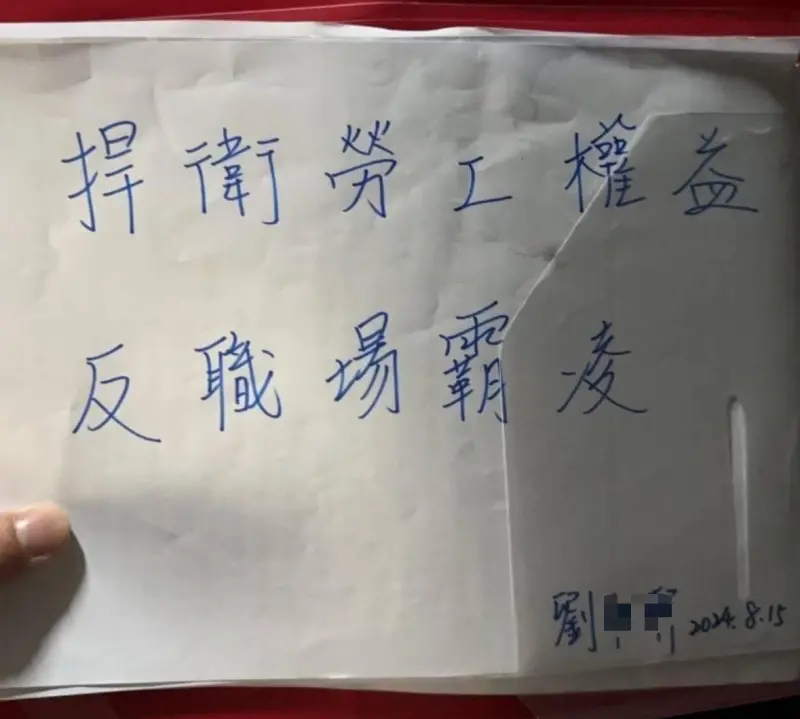 捍衛勞工權益
反職場霸凌
劉 2024.8.15